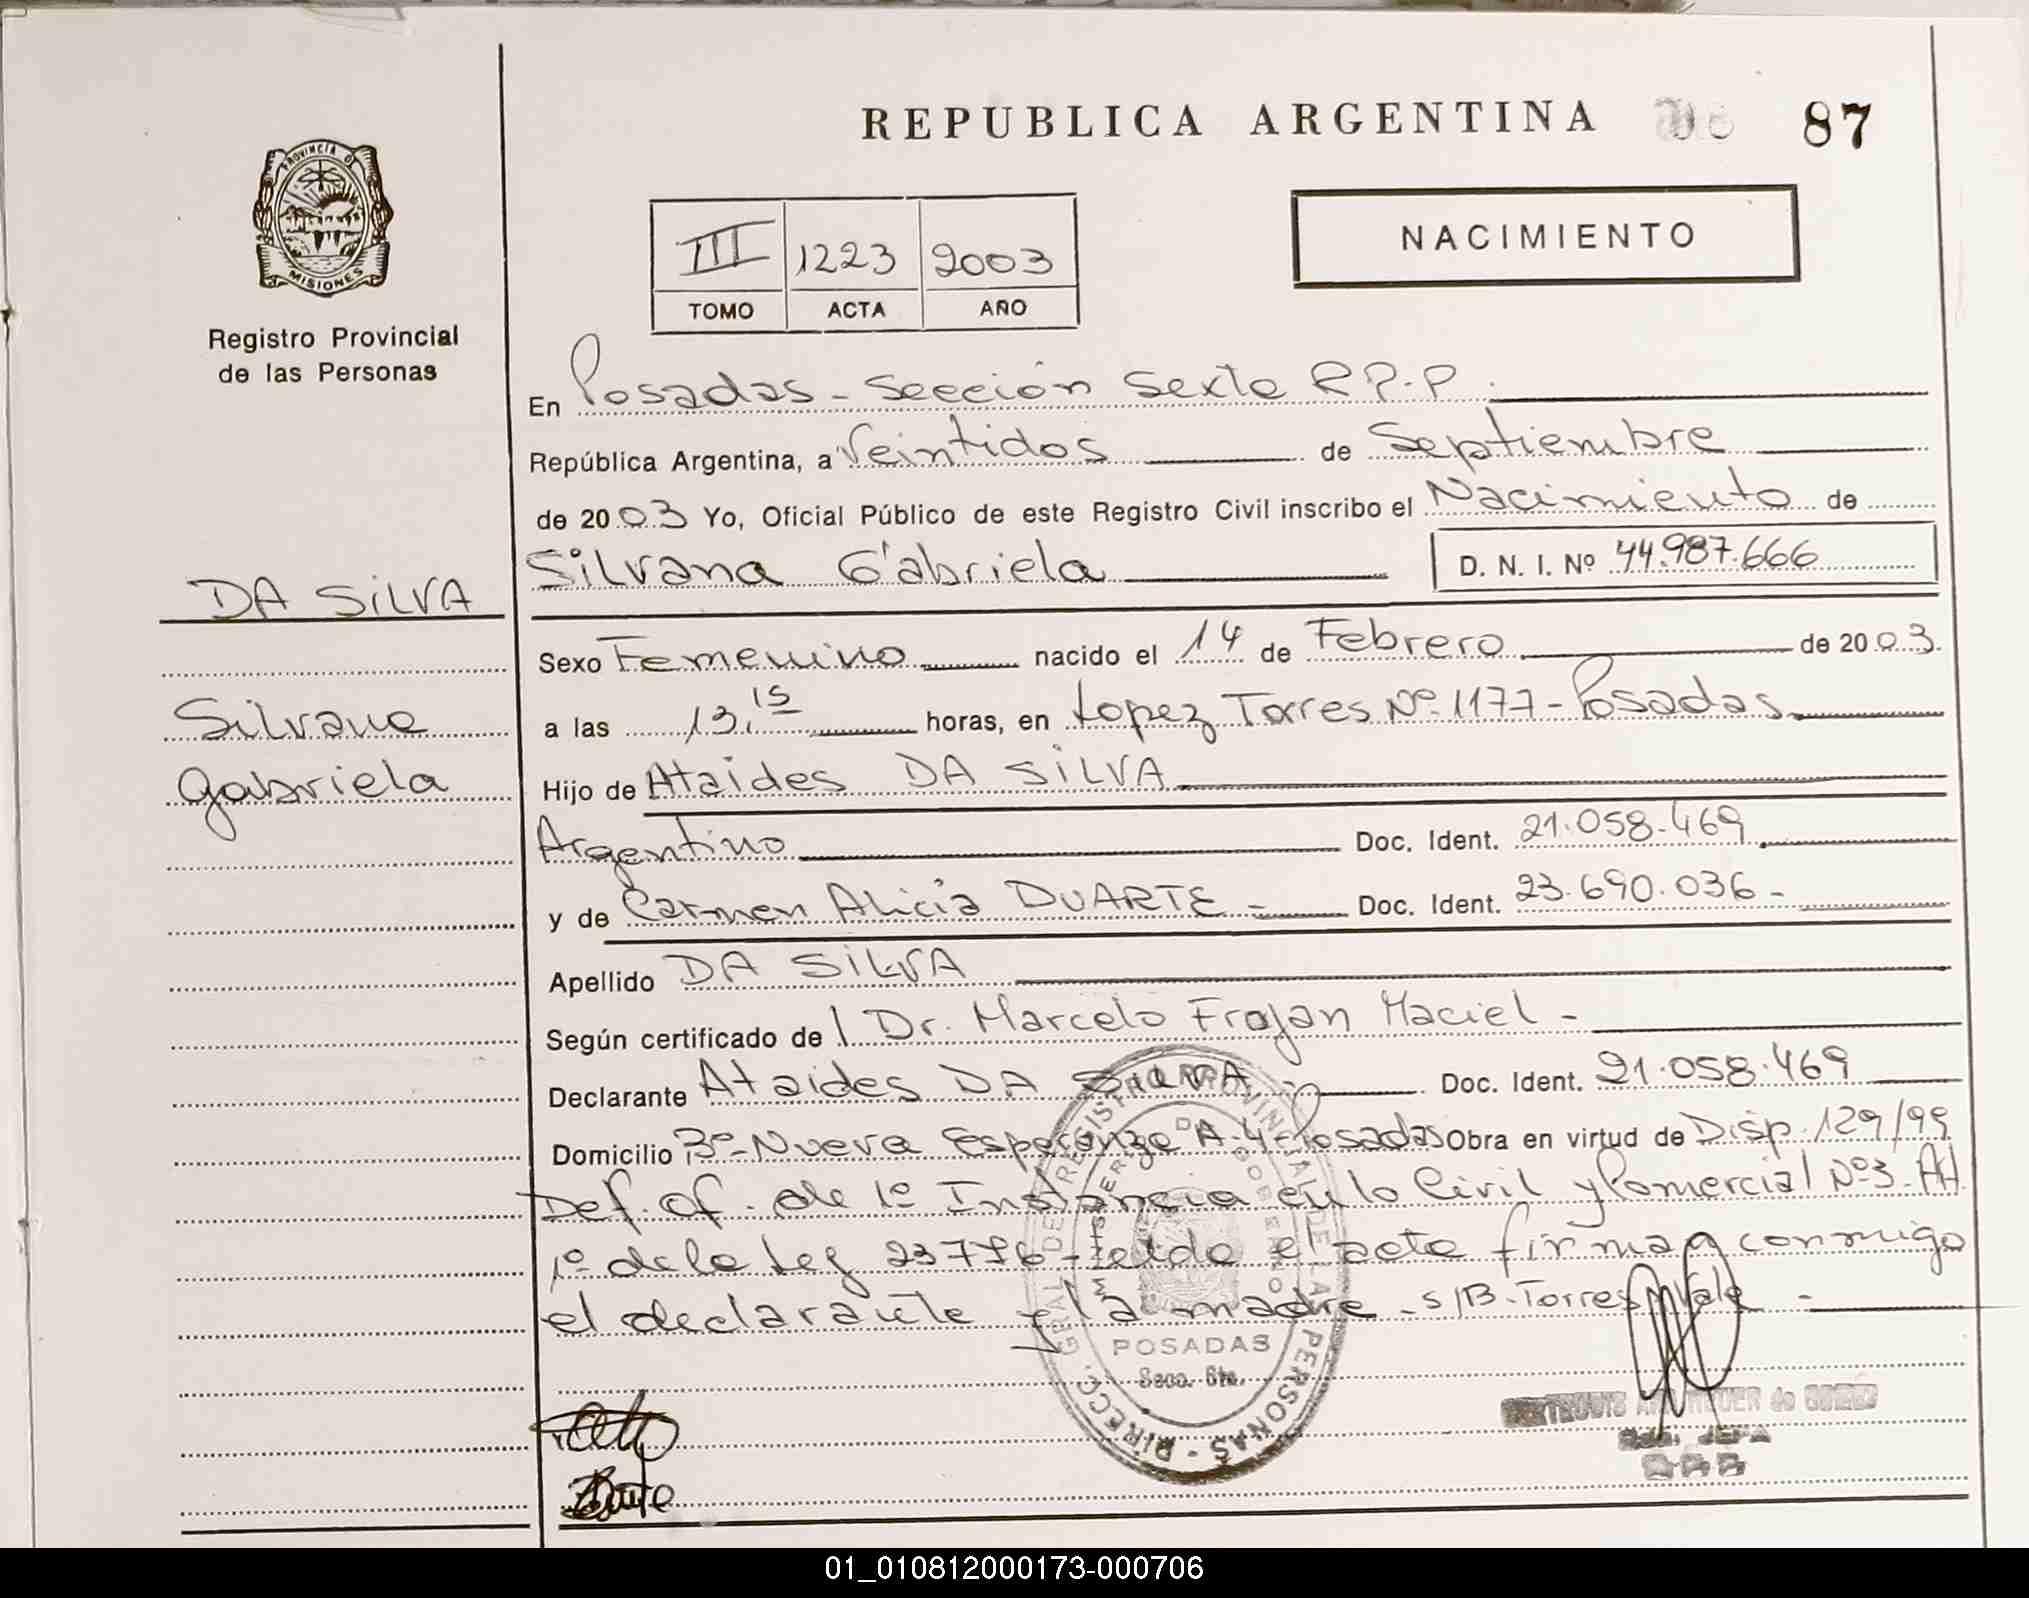 REPUBLICA ARGENTINA 87
PROVINCIA DE
MISIONES
Registro Provincial
de las Personas
III 1223 2003
TOMO ACTA AÑO
NACIMIENTO
En Posadas - Sección Sexta R.P.P.
República Argentina, a Veintidos de Septiembre
de 2003 Yo, Oficial Público de este Registro Civil inscribo el Nacimiento de
Silvana Gabriela D. N. I. Nº 44.987.666
DA SILVA
Sexo Femenino nacido el 14 de Febrero de 2003.
Silvana
a las 13,15 horas, en Lopez Torres Nº 1177 - Posadas
Gabriela
Hijo de Ataides DA SILVA
Argentino Doc. Ident. 21.058.469
y de Carmen Alicia DUARTE - Doc. Ident. 23.690.036 -
Apellido DA SILVA
Según certificado de l Dr. Marcelo Frojan Maciel -
Declarante Ataides DA SILVA - Doc. Ident. 21.058.469
Domicilio Bº Nueva Esperanza A-4 - Posadas Obra en virtud de Disp. 129/99
Def. Of. de 1º Instancia en lo Civil y Comercial Nº 3. Art.
1º de la Ley 23776 - Leída el acta firman conmigo
el declarante y la madre - S/B - Torres - Vale -
DIRECC. GRAL DE REGISTRO PROVINCIAL DE LAS PERSONAS
MINISTERIO DE GOBIERNO
POSADAS
Secc. 6ta.
JEFA
Duarte
01_010812000173-000706